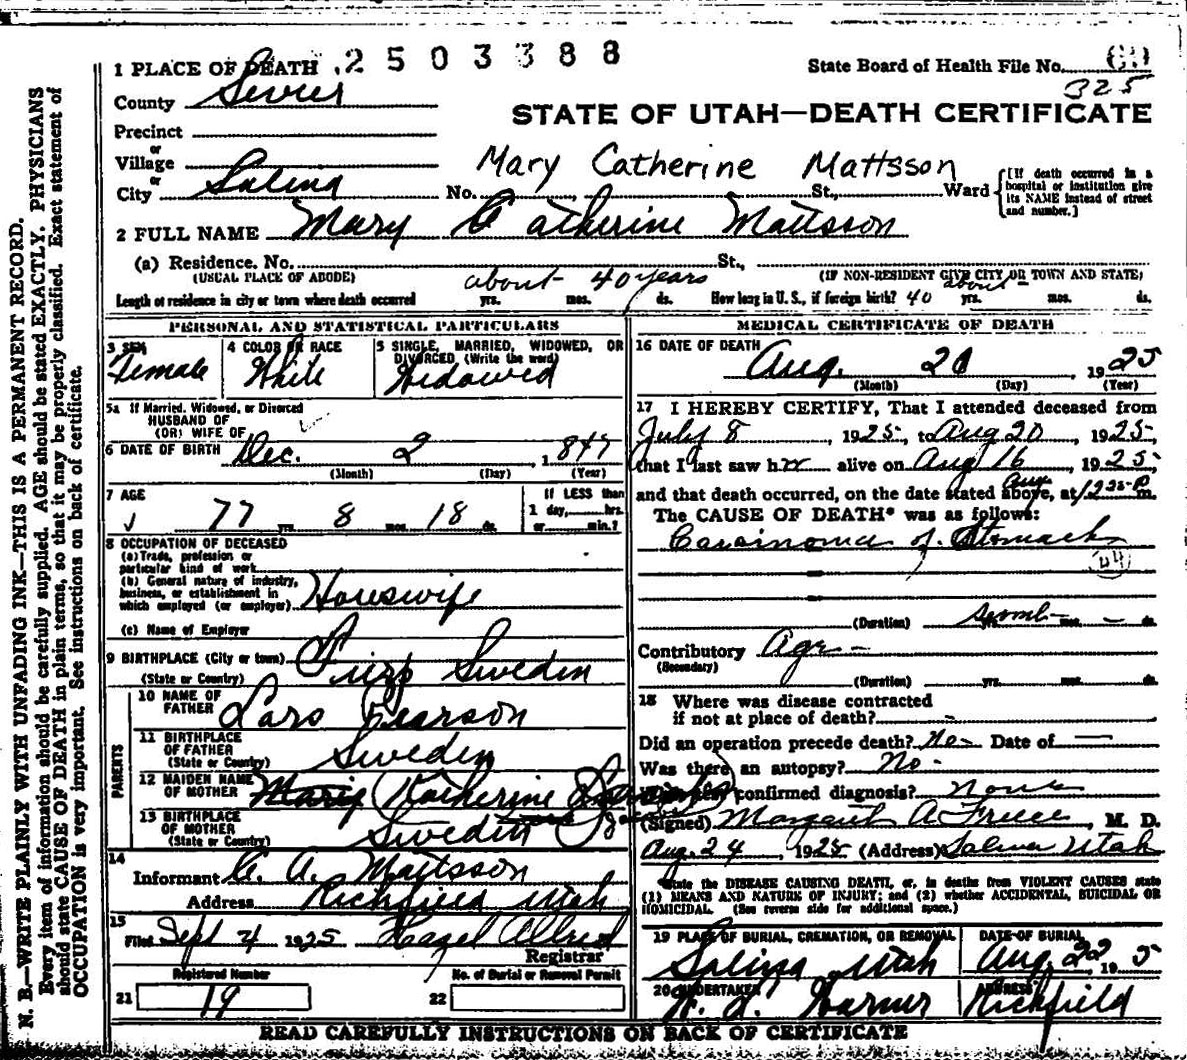 2503388
1 PLACE OF DEATH
State Board of Health File No. 60
325
County Sevier
STATE OF UTAH—DEATH CERTIFICATE
Precinct
or
Village
Mary Catherine Mattsson
or
City Salina No. St., Ward
[If death occurred in a hospital or institution give its NAME instead of street and number.]
2 FULL NAME Mary Catherine Mattsson
(a) Residence. No. St.,
(USUAL PLACE OF ABODE) (IF NON-RESIDENT GIVE CITY OR TOWN AND STATE)
Length of residence in city or town where death occurred about 40 years yrs. mos. ds. How long in U. S., if foreign birth? about 40 yrs. mos. ds.
PERSONAL AND STATISTICAL PARTICULARS
3 SEX Female
4 COLOR OR RACE White
5 SINGLE, MARRIED, WIDOWED, OR DIVORCED (Write the word) Widowed
5a If Married, Widowed, or Divorced
HUSBAND OF
(OR) WIFE OF
6 DATE OF BIRTH Dec. 2, 1847
(Month) (Day) (Year)
7 AGE 77 yrs. 8 mos. 18 ds.
If LESS than
1 day, hrs.
or min.?
8 OCCUPATION OF DECEASED
(a) Trade, profession or
particular kind of work
(b) General nature of industry,
business, or establishment in
which employed (or employer) Housewife
(c) Name of Employer
9 BIRTHPLACE (City or town) Sweden
(State or Country)
PARENTS
10 NAME OF
FATHER Lars Pearson
11 BIRTHPLACE
OF FATHER Sweden
(State or Country)
12 MAIDEN NAME
OF MOTHER Katherine
13 BIRTHPLACE
OF MOTHER Sweden
(State or Country)
14
Informant C. A. Mattsson
Address Richfield Utah
15
Filed Sept 4 1925 Hazel Allred
Registrar
Registered Number No. of Burial or Removal Permit
21 19 22
MEDICAL CERTIFICATE OF DEATH
16 DATE OF DEATH Aug. 20 1925
(Month) (Day) (Year)
17 I HEREBY CERTIFY, That I attended deceased from
July 8, 1925, to Aug 20, 1925,
that I last saw her alive on Aug 16, 1925,
and that death occurred, on the date stated above, at m.
The CAUSE OF DEATH* was as follows:
Carcinoma of Stomach
44
(Duration) yrs. mos. ds.
Contributory Age
(Secondary)
(Duration) yrs. mos. ds.
18 Where was disease contracted
if not at place of death?
Did an operation precede death? No Date of
Was there an autopsy? No
What test confirmed diagnosis? None
(Signed) Margaret A Freece, M. D.
Aug. 24, 1925 (Address) Salina Utah
*State the DISEASE CAUSING DEATH, or, in deaths from VIOLENT CAUSES state
(1) MEANS AND NATURE OF INJURY; and (2) whether ACCIDENTAL, SUICIDAL OR
HOMICIDAL. (See reverse side for additional space.)
19 PLACE OF BURIAL, CREMATION, OR REMOVAL Salina Utah
DATE OF BURIAL Aug 22 1925
20 UNDERTAKER
ADDRESS Richfield
READ CAREFULLY INSTRUCTIONS ON BACK OF CERTIFICATE
N. B.—WRITE PLAINLY WITH UNFADING INK—THIS IS A PERMANENT RECORD.
Every item of information should be carefully supplied. AGE should be stated EXACTLY. PHYSICIANS
should state CAUSE OF DEATH in plain terms, so that it may be properly classified. Exact statement of
OCCUPATION is very important. See instructions on back of certificate.